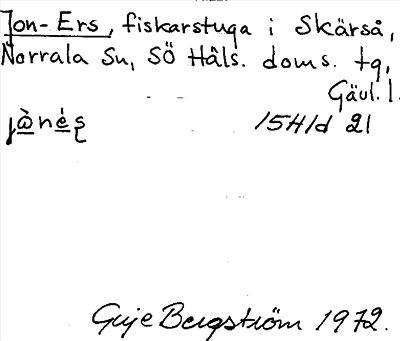 Jon-Ers, fiskarstuga i Skärså,
Norrala Sn, SÖ Häls. doms. tg,
Gävl. l.
jànés
15H1d 21
Guje Bergström 1972.